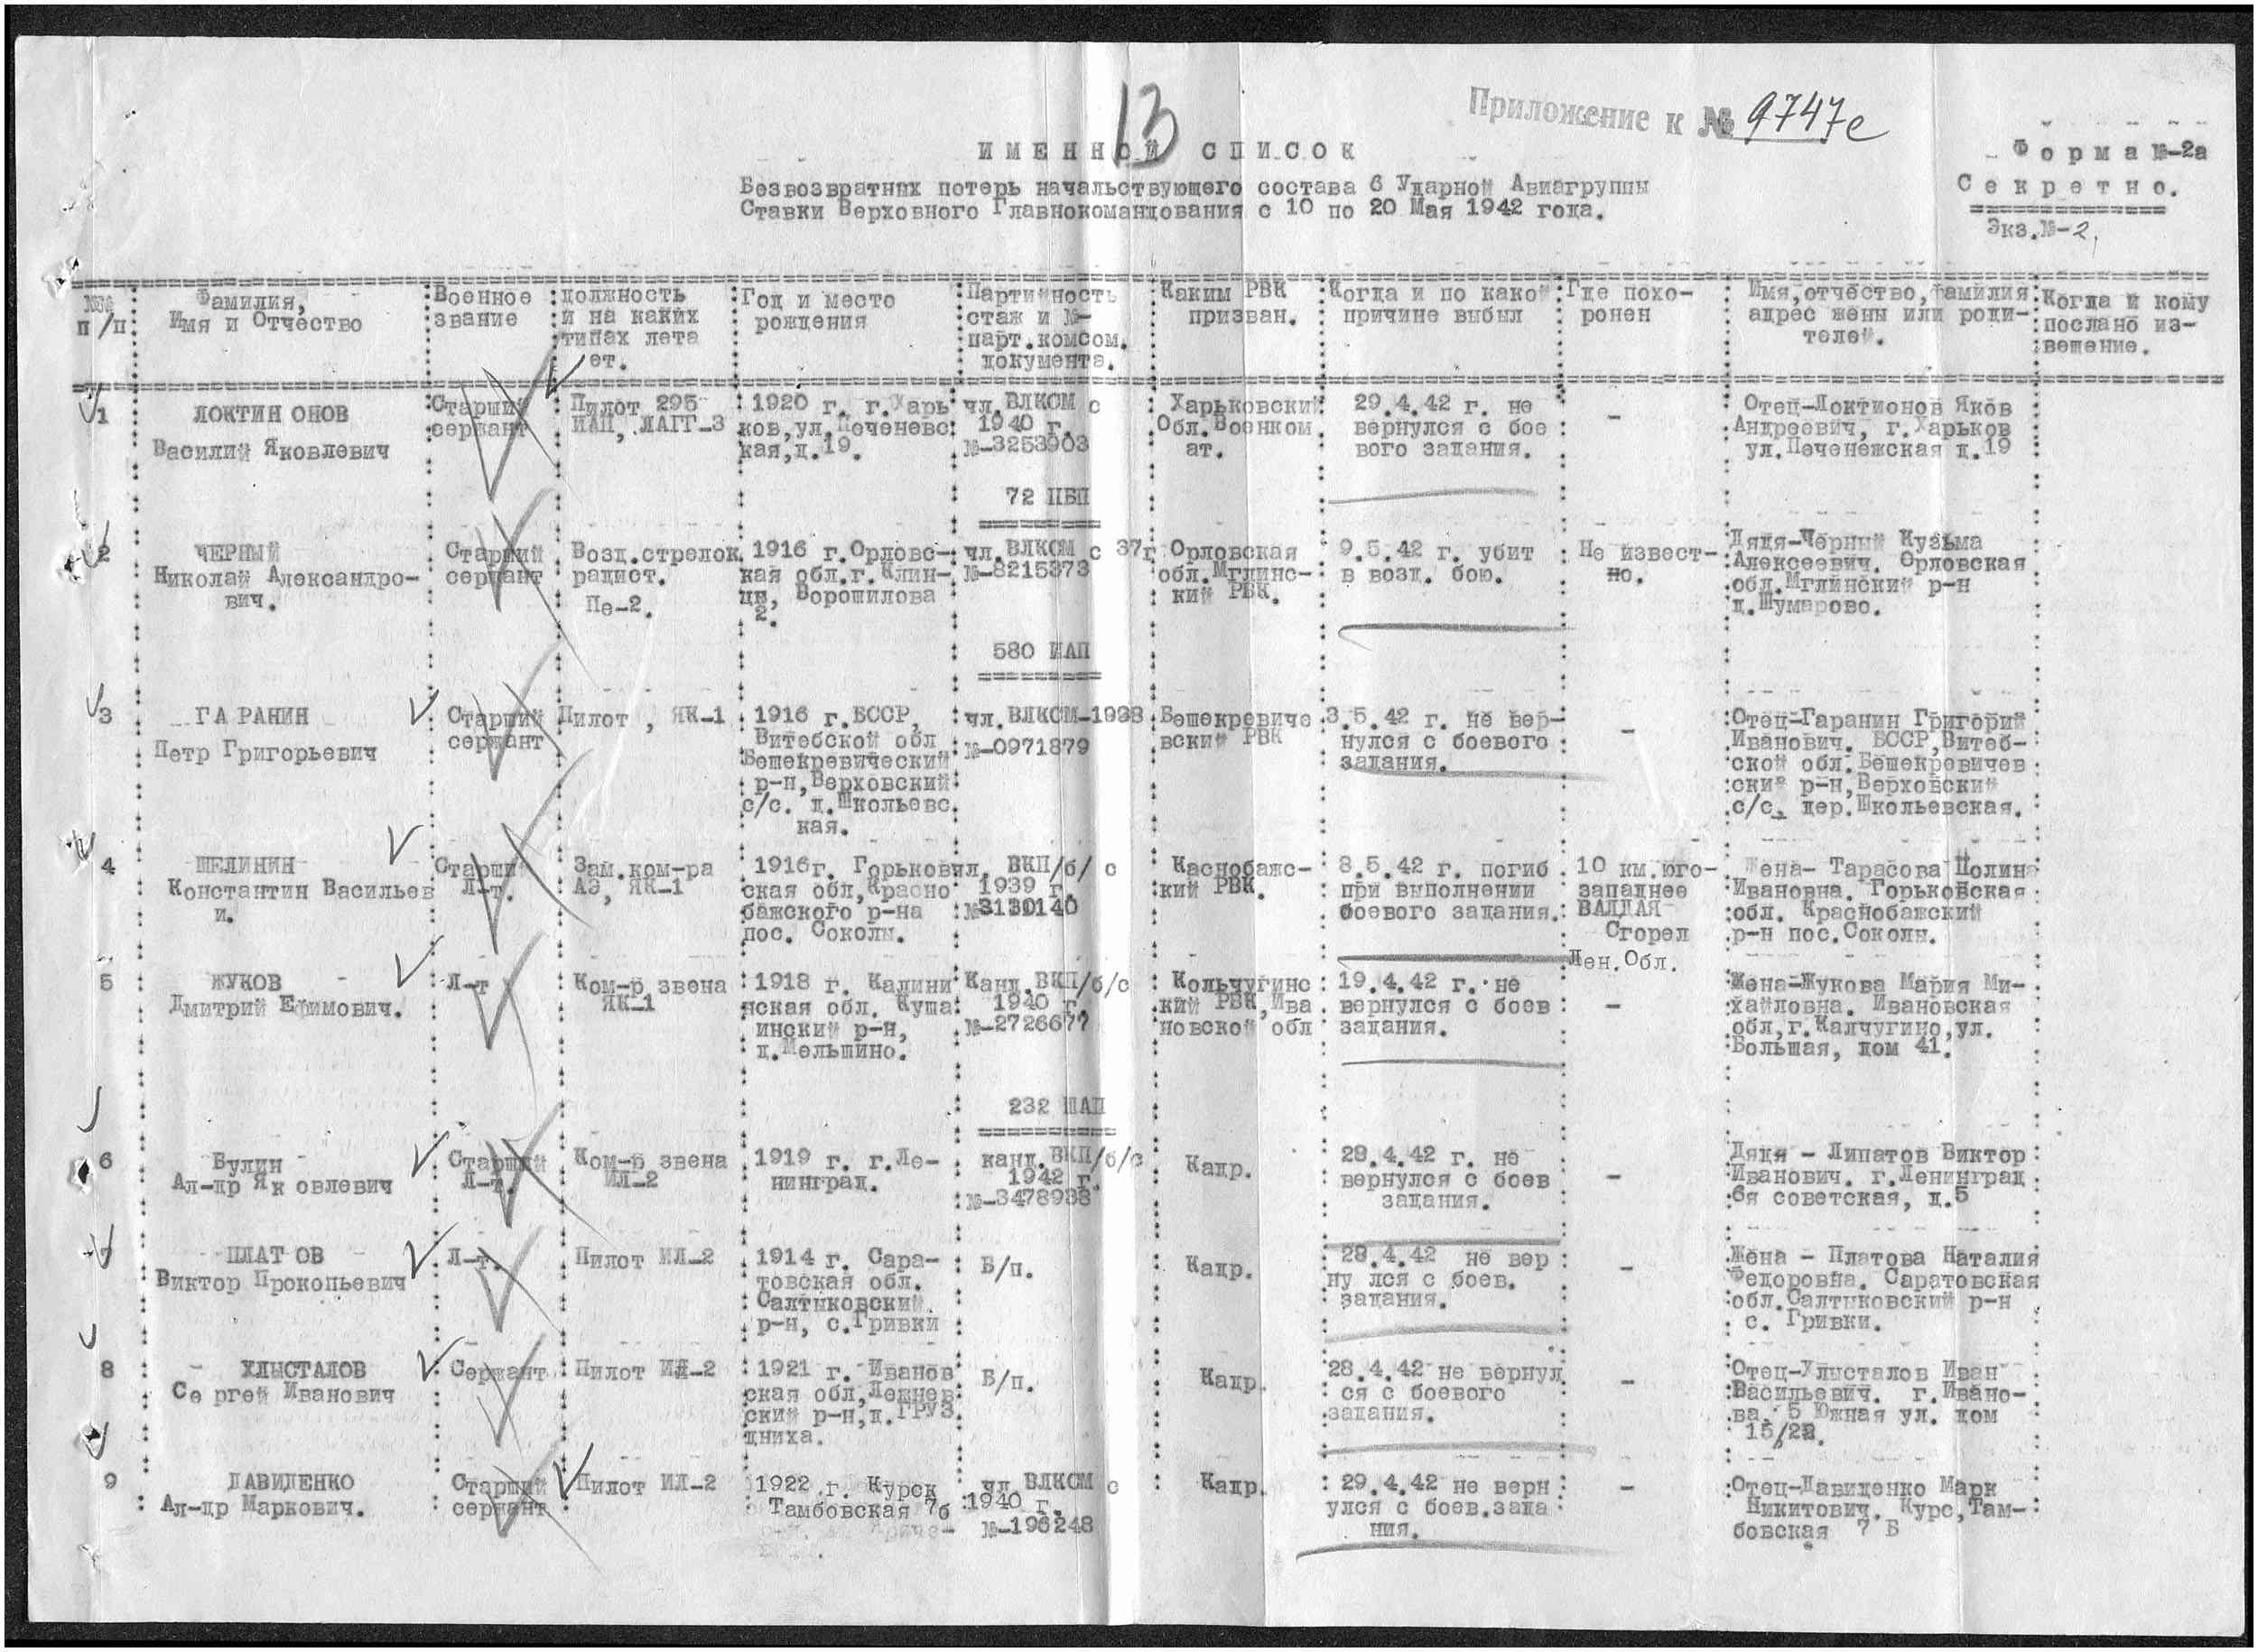 13
Приложение к № 9747с
ИМЕННОЙ СПИСОК
Форма №-2а
Безвозвратных потерь начальствующего состава 6 Ударной Авиагруппы
Секретно.
Ставки Верховного Главнокомандования с 10 по 20 Мая 1942 года.
Экз.№-2.
№№ п/п
Фамилия,
Имя и Отчество
Военное
звание
должность
и на каких
типах лета
ет.
Год и место
рождения
Партийность
стаж и №-
парт.комсом.
документа.
Каким РВК
призван.
Когда и по какой
причине выбыл
Где похо-
ронен
Имя,отчество,фамилия
адрес жены или роди-
телей.
Когда и кому
послано из-
вещение.
1
ЛОКТИН ОНОВ
Василий Яковлевич
Старший
сержант
Пилот 295
ИАП, ЛАГГ-3
1920 г. г.Харь
ков,ул.Печеневс
кая,д.19.
чл.ВЛКСМ с
1940 г.
№-3253903
Харьковский
Обл.Военком
ат.
29.4.42 г. не
вернулся с бое
вого задания.
-
Отец-Локтионов Яков
Андреевич, г.Харьков
ул.Печенежская д.19
72 ПБП
2
ЧЕРНЫЙ
Николай Александро-
вич.
Старший
сержант
Возд.стрелок
радист.
Пе-2.
1916 г.Орловс-
кая обл.г.Клин-
цы, Ворошилова
2.
чл.ВЛКСМ с 37г
№-8215373
Орловская
обл.Мглинс-
кий РВК.
9.5.42 г. убит
в возд. бою.
Не извест-
но.
Дядя-Черный Кузьма
Алексеевич. Орловская
обл.Мглинский р-н
д.Шумарово.
580 ИАП
3
ГА РАНИН
Петр Григорьевич
Старший
сержант
Пилот , ЯК-1
1916 г.БССР,
Витебской обл
Бешекревический
р-н,Верховский
с/с. д.Школьевс.
кая.
чл.ВЛКСМ-1938
№-0971879
Бешекревиче
вский РВК
3.5.42 г. не вер-
нулся с боевого
задания.
-
Отец-Гаранин Григорий
Иванович. БССР,Витеб-
ской обл.Бешекревичев
ский р-н,Верховский
с/с, дер.Школьевская.
4
ШЕЛИНИН
Константин Васильев
и.
Старший
Л-т.
Зам.ком-ра
АЭ, ЯК-1
1916г. Горьков
ская обл,Красно
бажского р-на
пос. Соколы.
чл. ВКП/б/ с
1939 г.
№3130140
Каснобажс-
кий РВК.
8.5.42 г. погиб
при выполнении
боевого задания.
10 км.юго-
западнее
ВАЛДАЯ
Сгорел
Лен.Обл.
Жена- Тарасова Полина
Ивановна. Горьковская
обл. Краснобажский
р-н пос.Соколы.
5
ЖУКОВ
Дмитрий Ефимович.
Л-т
Ком-р звена
ЯК-1
1918 г. Калини
нская обл. Куша
инский р-н,
д.Мельшино.
Канд.ВКП/б/с
1940 г.
№-2726677
Кольчугинс
кий РВК,Ива
новской обл
19.4.42 г. не
вернулся с боев
задания.
-
Жена-Жукова Мария Ми-
хайловна. Ивановская
обл,г.Калчугино,ул.
Большая, дом 41.
232 ШАП
6
Булин
Ал-др Як овлевич
Старший
Л-т.
Ком-р звена
ИЛ-2
1919 г. г.Ле-
нинград.
канд.ВКП/б/с
1942 г.
№-3478938
Кадр.
28.4.42 г. не
вернулся с боев
задания.
-
Дядя - Липатов Виктор
Иванович. г.Ленинград
6я советская, д.5
7
ПЛАТ ОВ
Виктор Прокопьевич
Л-т.
Пилот ИЛ-2
1914 г. Сара-
товская обл.
Салтыковский
р-н, с.Гривки
Б/п.
Кадр.
28.4.42 не вер
ну лся с боев.
задания.
-
Жена - Платова Наталия
Федоровна. Саратовская
обл.Салтыковский р-н
с. Гривки.
8
ХЛЫСТАЛОВ
Се ргей Иванович
Сержант
Пилот ИЛ-2
1921 г. Иванов
ская обл,Лежнев
ский р-н,д.ГРУЗ
дниха.
Б/п.
Кадр.
28.4.42 не вернул
ся с боевого
задания.
-
Отец-Хлысталов Иван
Васильевич. г.Ивано-
ва, 5 Южная ул. дом
15/22.
9
ДАВИДЕНКО
Ал-др Маркович.
Старший
сержант
Пилот ИЛ-2
1922 г. Курск
Тамбовская 7б
чл ВЛКСМ с
1940 г.
№-196248
Кадр.
29.4.42 не верн
улся с боев.зада
ния.
-
Отец-Давиденко Марк
Никитович. Курс,Там-
бовская 7 Б